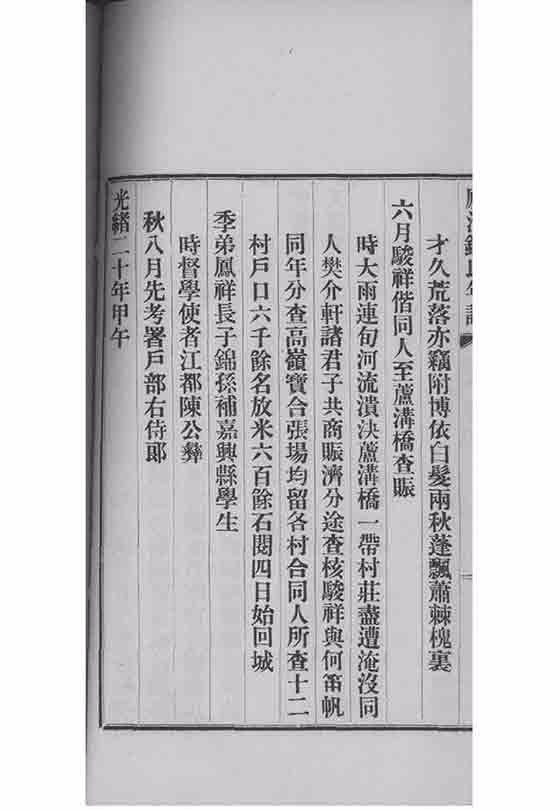 才久荒落亦竊附博依白髮兩秋蓬飄蕭棘槐裏
六月駿祥偕同人至蘆溝橋查賑
時大雨連旬河流潰決蘆溝橋一帶村莊盡遭淹沒同
人樊介軒諸君子共商賑濟分途查核駿祥與何芾帆
同年分查高嶺寶合張場均留各村合同人所查十二
村戶口六千餘名放米六百餘石閱四日始回城
季弟鳳祥長子錦孫補嘉興縣學生
時督學使者江都陳公彝
秋八月先考署戶部右侍郎
光緒二十年甲午